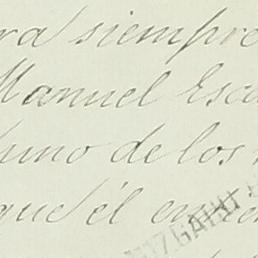 ra siempre
Manuel Esc
uno de los
que él